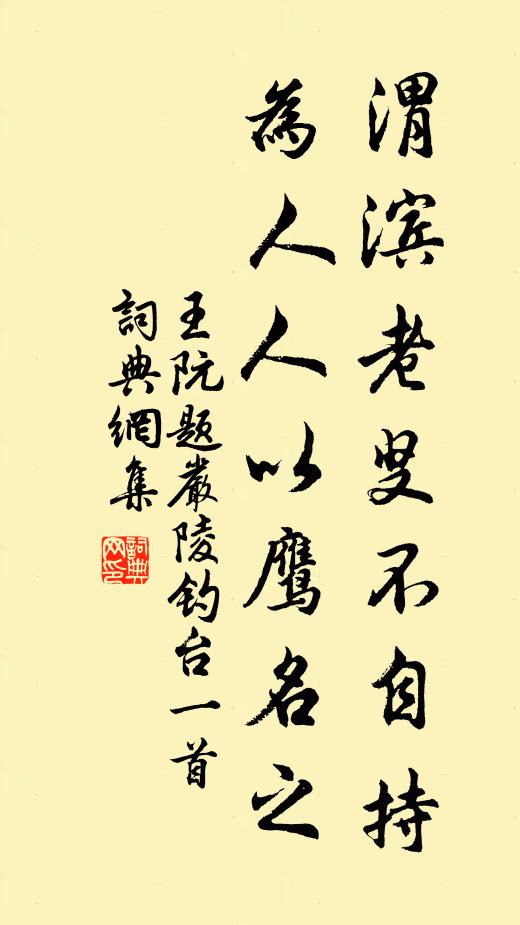 渭滨老叟不自持
為人人以鹰名之
王阮题嚴陵钓台一首
詞典網集
詞典
网印